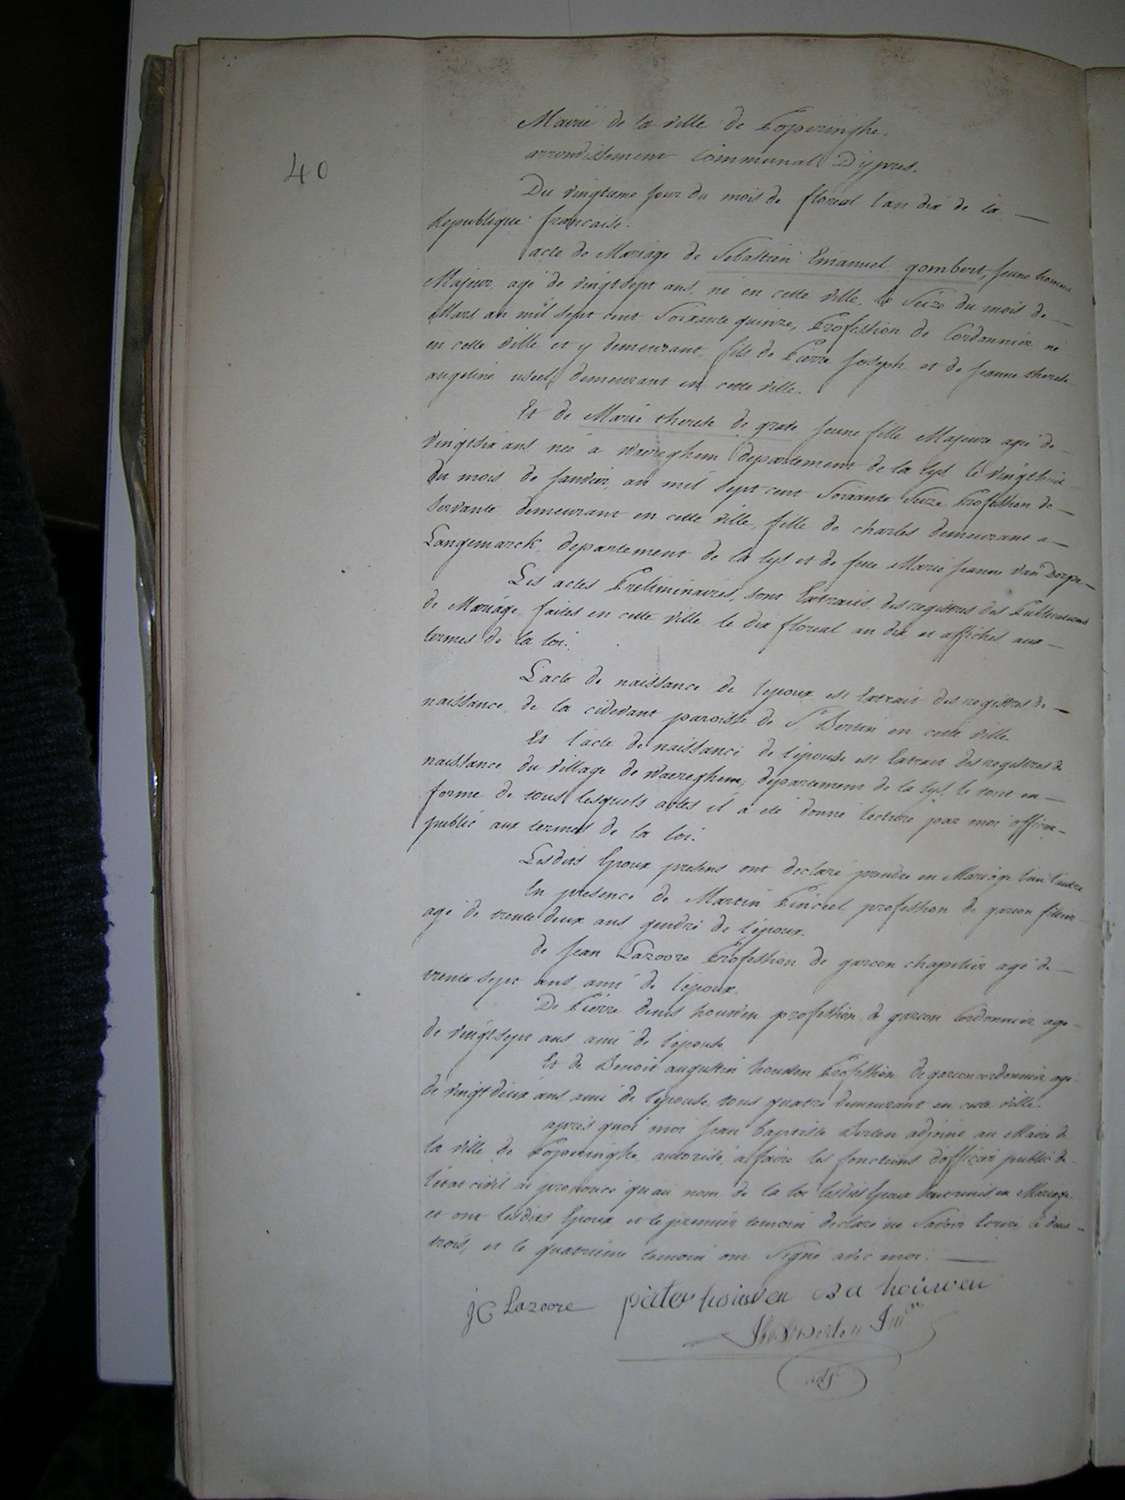 40
Mairie de la ville de Poperinghe.
arrondissement Communal D'ypres.
Du vingtieme jour du mois de floreal l'an dix de la
Republique francaise.
acte de Mariage de Sebastien Emanuel gombert, jeune homme
Majeur, agé de vingt sept ans, né en cette ville, le Seize du mois de
Mars an mil sept cent Soixante quinze, Profession de Cordonnier né
en cette ville et y demeurant fils de Pierre Joseph et de Jeanne therese
angeline demeurant en cette ville.
Et de Marie therese de grate jeune fille Majeure agé de
vingtsix ans née a Waereghem departement de la Lys le
du mois de janvier, an mil sept cent Soixante Seize Profession de
Servante demeurant en cette ville, fille de charles demeurant a
Langemarck departement de la Lys et de feue Marie jeanne Van
Les actes Preliminaires, sont Extraits des registres des Publications
de Mariage faites en cette ville le dix floreal an dix et affichés aux
termes de la loi.
L'acte de naissance de l'epoux est Extrait des registres de
naissance de la cidevant paroisse de St Bertin en cette ville
Et l'acte de naissance de l'épouse est Extrait des registres de
naissance du village de Waereghem, departement de la Lys le tout en
forme de tous lesquels actes il a eté donné lecture par moi officier
public aux termes de la loi.
Lesdits Epoux presens ont declaré prendre en Mariage l'un l'autre
En presence de Martin profession de garcon
agé de trente deux ans gendre de l'époux.
de Jean Lazoore Profession de garcon chapelier agé de
trente sept ans ami de l'epoux.
De Pierre denis houwen profession de garcon Cordonnier age
de vingt sept ans ami de l'epouse
Et de Benoit augustin houwen Profession de garcon cordonnier agé
de vingt deux ans ami de l'epouse, tous quatre demeurant en cette ville.
apres quoi moi Jean baptiste Berten adjoint au Maire de
la ville de Poperinghe, autorisé, a faire les fonctions d'officier public de
l'état civil ai prononcé qu'au nom de la loi lesdits Epoux Sont unis en Mariage
et ont lesdits Epoux et le premier temoin declaré ne Savoir Ecrire, le deux
trois, et le quatrieme temoin ont Signé avec moi.
J C Lazoore pieter houwen B a houwen